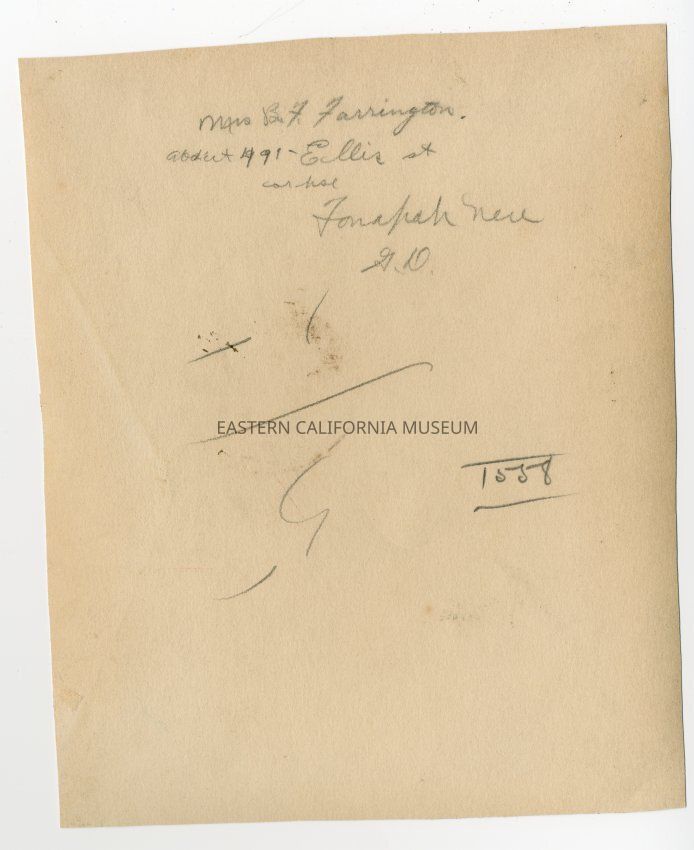 Mrs B. F. Farrington.
491 - Ellis st
Tonapah Nev
G.D.
EASTERN CALIFORNIA MUSEUM
1558